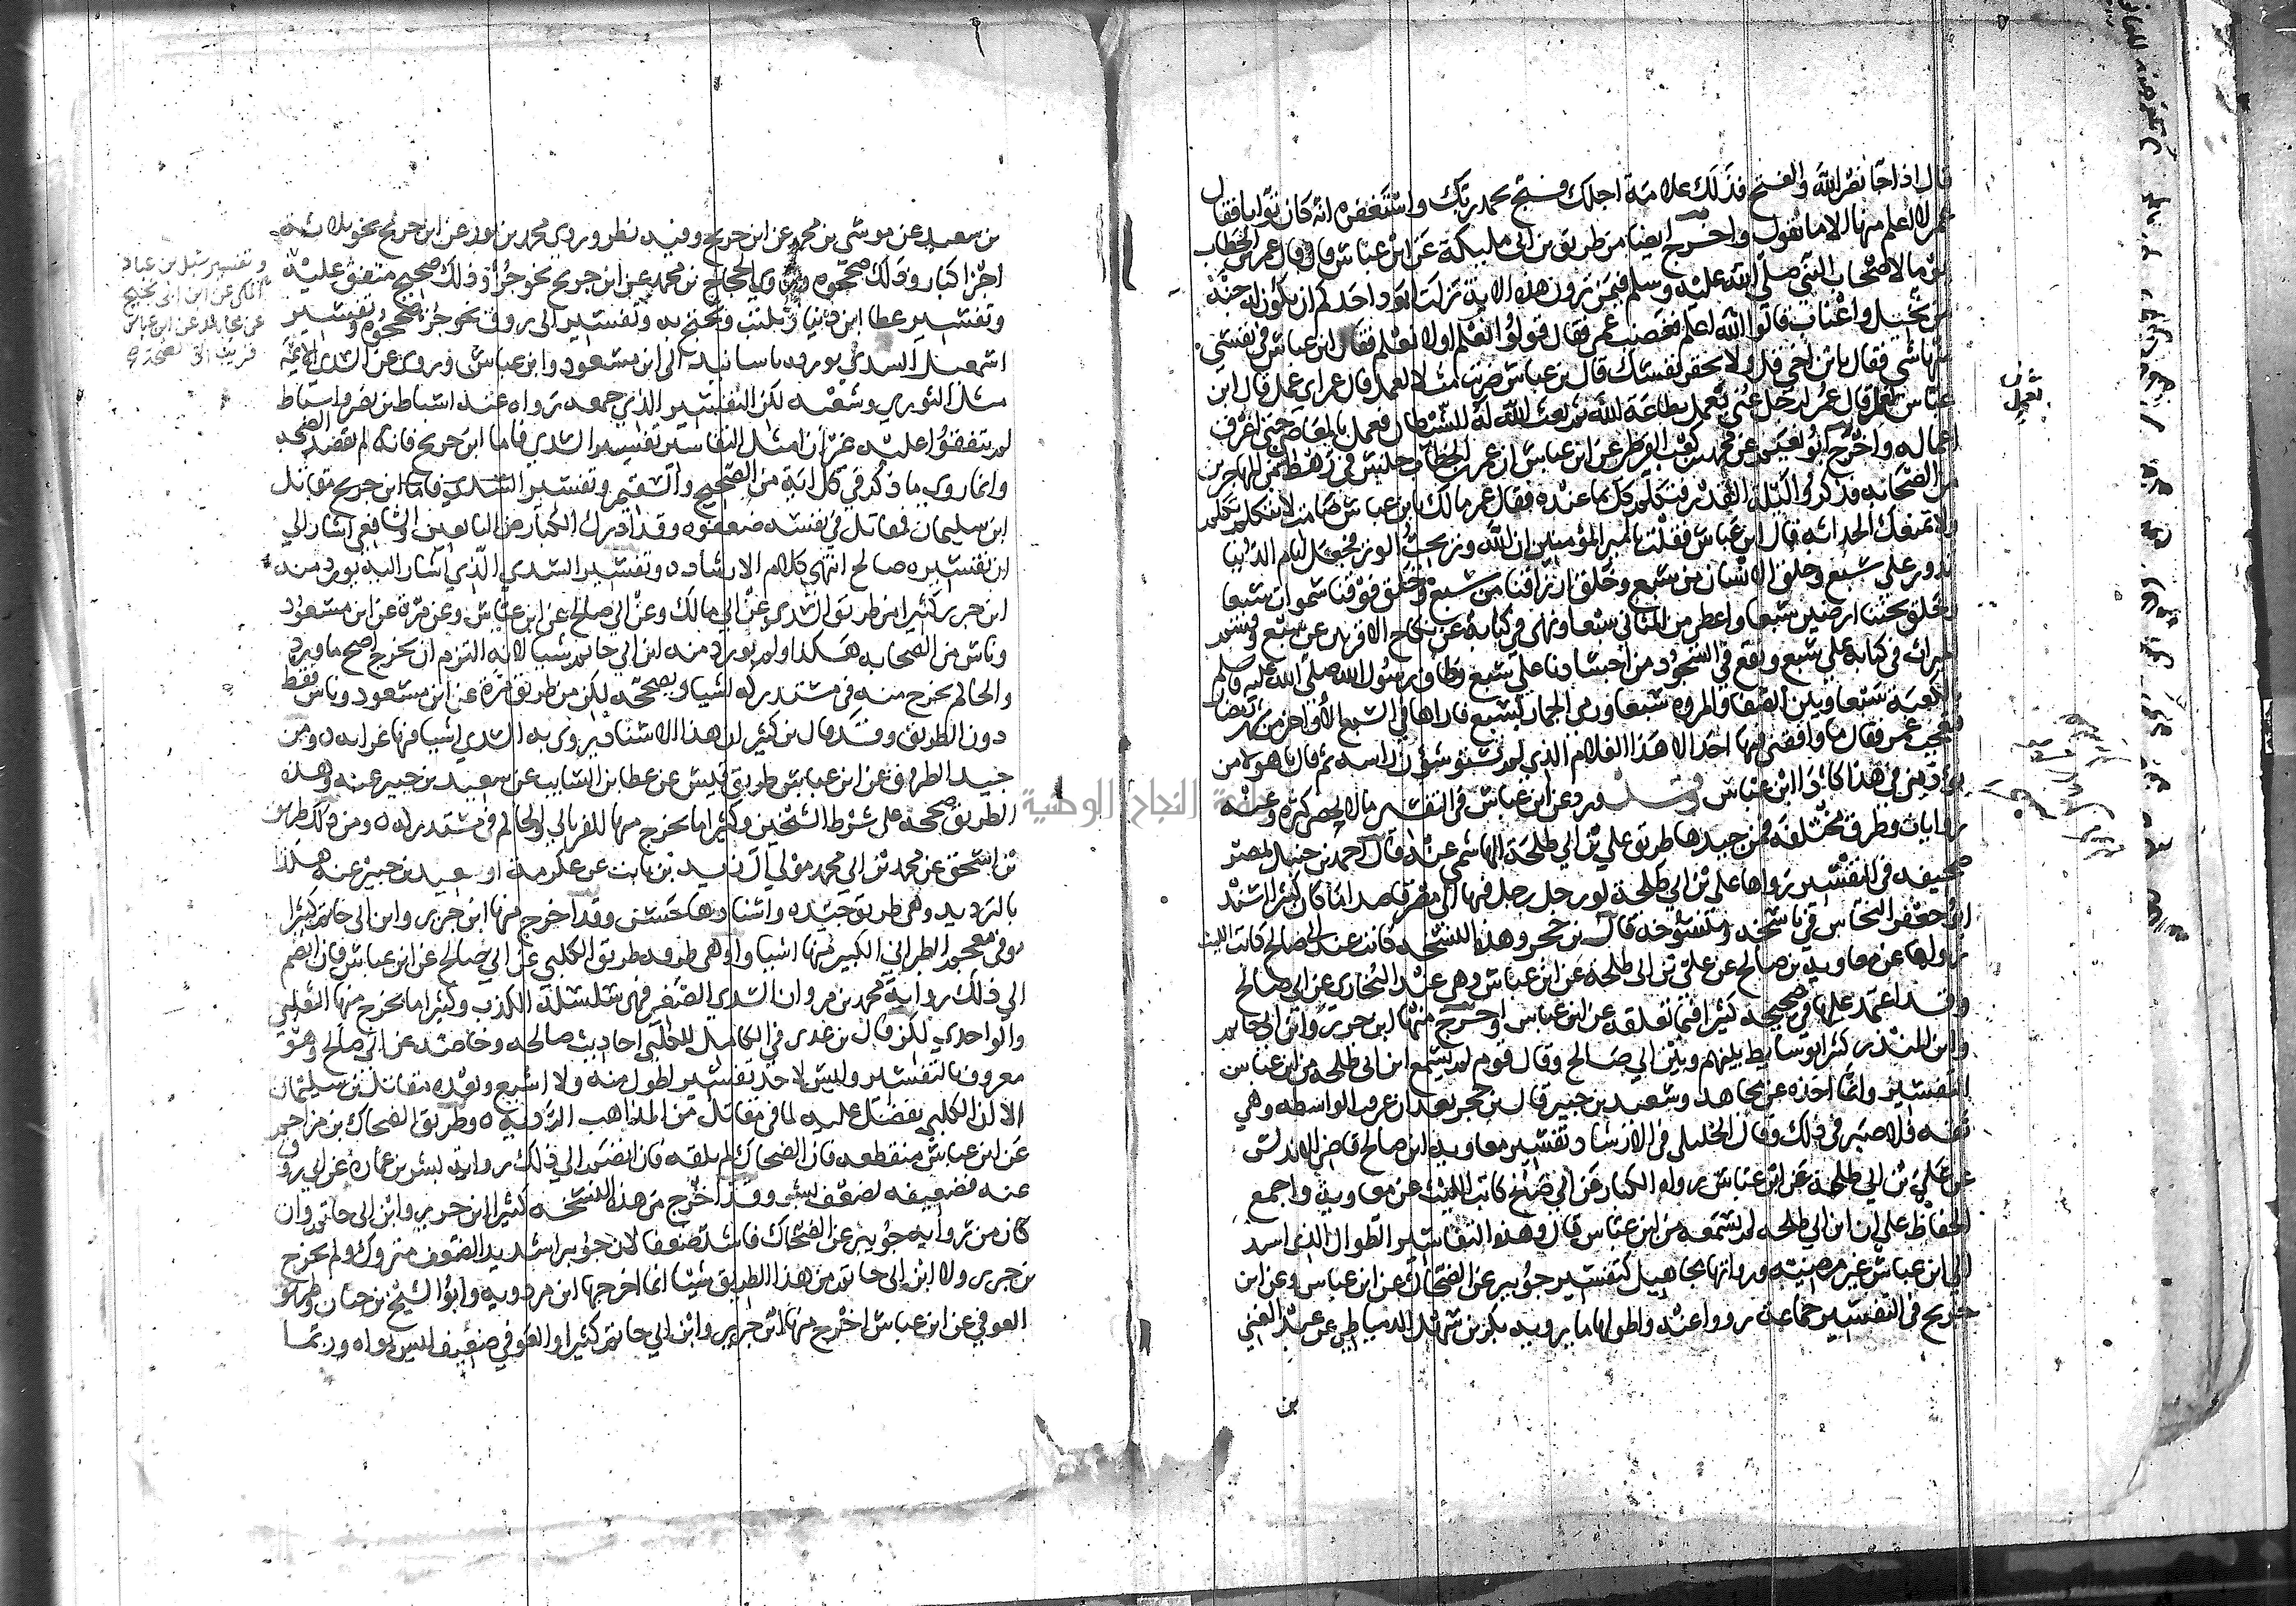 قال اذا جا نصر الله والفتح فذلك علامة اجلك فسبح بحمد ربك واستغفره انه كان توابا فقال
عمر لا اعلم منها الا ما تقول واخرج ايضا من طريق بن ابي مليكة عن ابن عباس قال قال عمر بن الخطاب
يوما لاصحاب النبي صلى الله عليه وسلم فيمن ترون هذه الاية نزلت ايود احدكم ان يكون له جنة
من نخيل واعناب قالوا الله اعلم فغضب عمر فقال قولوا نعلم اولا نعلم فقال ابن عباس في نفسي
منها شي فقال يا بن اخي قل ولا تحقر نفسك قال بن عباس ضربت مثلا لعمل قال عمر اي عمل قال ابن
عباس لعمل قال عمر لرجل غني يعمل بطاعة الله ثم بعث الله له الشيطان فعمل بالمعاصي حتى اغرق
اعماله واخرج ابو نعيم عن محمد بن كعب القرظي عن ابن عباس ان عمر بن الخطاب جلس في رهط من المهاجرين
من الصحابه فذكروا ليلة القدر فتكلم كل بما عنده فقال عمر مالك يا بن عباس صامت لا تتكلم تكلم
ولا تمنعك الحداثه قال ابن عباس فقلت يا امير المؤمنين ان الله وتر يحب الوتر فجعل ايام الدنيا
تدور على سبع وخلق الانسان من سبع وخلق ارزاقنا من سبع وخلق فوقنا سموات سبعا
وخلق تحتنا ارضين سبعا واعطى من المثاني سبعا ونهى في كتابه عن نكاح الاقربين عن سبع وقسم
الميراث في كتابه على سبع ونقع في السجود من اجسادنا على سبع وطاف رسول الله صلى الله عليه وسلم
بالكعبة سبعا وبين الصفا والمروه سبعا ورمى الجمار بسبع فاراها في السبع الاواخر من رمضان
فتعجب عمر فقال ما وافقني فيها احد الا هذا الغلام الذي لم تستو شؤن راسه ثم قال يا هولا من
يؤديني في هذا كاداء ابن عباس وقد ورد عن ابن عباس في التفسير ما لا يحصى كثره وعنه
روايات وطرق مختلفة فمن جيدها طريق علي بن ابي طلحة الهاشمي عنه قال احمد بن حنبل بمصر
صحيفه في التفسير رواها علي بن ابي طلحة لو رحل رجل فيها الى مصر قاصدا ما كان كثيرا اسنده
ابو جعفر النحاس في ناسخه ومنسوخه قال بن حجر وهذه النسخه كانت عند ابي صالح كاتب الليث
رواها عن معاويه بن صالح عن علي بن ابي طلحة عن ابن عباس وهي عند البخاري عن ابي صالح
وقد اعتمد عليها في صحيحه كثيرا فيما نعلقه عن ابن عباس واخرج منها ابن جرير وابن ابي حاتم
وابن المنذر كثيرا بوسايط بينهم وبين ابي صالح وقال قوم لم يسمع ابن ابي طلحه من ابن عباس
التفسير وانما اخذه عن مجاهد وسعيد بن جبير قال بن حجر بعد ان عرف الواسطه وهي
ثقه فلا ضير في ذلك وقال الخليلي في الارشاد تفسير معاويه ابن صالح قاضي الاندلس
عن علي بن ابي طلحة عن ابن عباس رواه الكبار عن ابي صالح كاتب الليث عن معاوية واجمع
الحفاظ على ان ابن ابي طلحه لم يسمعه من ابن عباس قال وهذه التفاسير الطوال الذي اسند
الى ابن عباس غير مرضيته ورواتها مجاهيل كتفسير جويبر عن الضحاك عن ابن عباس وعن ابن
جريج في التفسير جماعة رووا عنه واطولها ما يرويه بكر بن سهل الدمياطي عن عبد الغني
بن
شرف
لعمل
بن سعيد عن موسى بن محمد عن ابن جريج وفيه نظر وروى محمد بن ثور عن ابن جريج نحو ثلاثه
اجزا كبار وذلك صححوه وروى الحجاج بن محمد عن ابن جريج نحو جزؤ وذلك صحيح متفق عليه
وتفسير عطا ابن دينار يكتب ويحتج به وتفسير ابي روق نحو جزؤ صححوه وتفسير
اسمعيل السدي يورده باسانيد الى ابن مسعود وابن عباس وروى عن السدي الايمة
مثل الثوري وشعبه لكن التفسير الذي جمعه رواه عنه اسباط بن نصر واسباط
لم يتفقوا عليه غير ان امثل التفاسير تفسير السدي فاما ابن جريج فانه لم يقصد الصحه
وانما روى ما ذكر في كل اية من الصحيح والسقيم وتفسير مقاتل
ابن سليمان فمقاتل في نفسه ضعفوه وقد ادرك الكبار من التابعين والشافعي اشار الى
ان تفسيره صالح انتهى كلام الارشاد ه وتفسير السدي الذي اشار اليه يورد منه
ابن جرير كثيرا من طريق السدي عن ابي مالك وعن ابي صالح عن ابن عباس وعن مرة عن ابن مسعود
وناس من الصحابه هكذا ولم يورد منه ابن ابي حاتم شيا لانه التزم ان يخرج اصح ما ورد
والحاكم يخرج منه في مستدركه اشيا ويصححه لكن من طريق مرة عن ابن مسعود وناس فقط
دون الطريق وقد قال بن كثير ان هذا الاسناد يروى به السدي اشيا فيها غرابه ه ومن
جيد الطرق عن ابن عباس طريق قيس عن عطا بن السايب عن سعيد بن جبير عنه وهذه
الطريق صحيحه على شرط الشيخين وكثيرا ما يخرج منها الفريابي والحاكم في مستدركه ه ومن ذلك طريق
بن اسحق عن محمد بن ابي محمد مولى ال زيد بن ثابت عن عكرمة او سعيد بن جبير عنه هكذا
بالترديد وهي طريق جيده واسنادها حسن وقد اخرج منها ابن جرير وابن ابي حاتم كثيرا
وفي معجم الطبراني الكبير منها اشيا واوهى طرقه طريق الكلبي عن ابي صالح عن ابن عباس فان انضم
الى ذلك رواية محمد بن مروان السدي الصغير فهي سلسلة الكذب وكثيرا ما يخرج منها الثعلبي
والواحدي لكن قال بن عدي في الكامل للكلبي احاديث صالحه وخاصة عن ابي صالح وهو
معروف بالتفسير وليس لاحد تفسير اطول منه ولا اشبع وبعده مقاتل بن سليمان
الا ان الكلبي يفضل عليه لما في مقاتل من المذاهب الرديه ه وطريق الضحاك بن مزاحم
عن ابن عباس منقطعه فان الضحاك لم يلقه فان انضم الى ذلك رواية بشر بن عماره عن ابي روق
عنه فضعيفه لضعف بشر وقد اخرج من هذه النسخه كثيرا ابن جرير وابن ابي حاتم وان
كان من رواية جويبر عن الضحاك فاشد ضعفا لان جويبر شديد الضعف متروك ولم يخرج
بن جرير ولا ابن ابي حاتم من هذا الطريق شيا انما اخرجها ابن مردويه وابو الشيخ بن حبان وطريق
العوفي عن ابن عباس اخرج منها ابن جرير وابن ابي حاتم كثيرا والعوفي ضعيف ليس بواه وربما
وتفسير شبل بن عباد
المكي عن ابن ابي نجيح
عن مجاهد عن ابن عباس
قريب الى الصحه
النجاح الوطنية